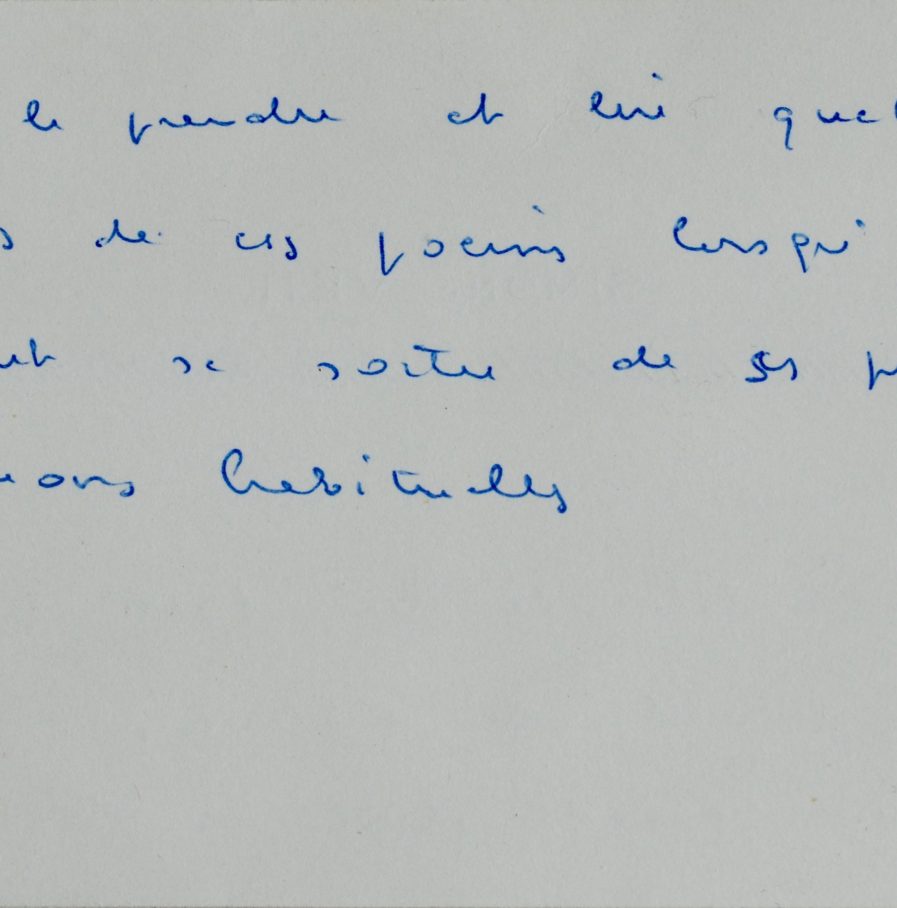 le prendre et lire quel
s de ces poèmes lorsqu'
ut se sortir de ses p
ions habituelles